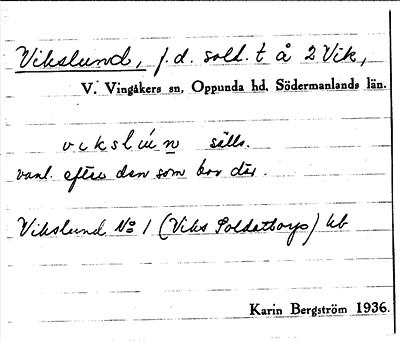 Vikslund, f.d. sold. t å 2 Vik,
V. Vingåkers sn, Oppunda hd, Södermanlands län.
vikslún sälls.
vanl. efter den som bor där.
Vikslund No 1 (Viks Soldattorp) kb
Karin Bergström 1936.